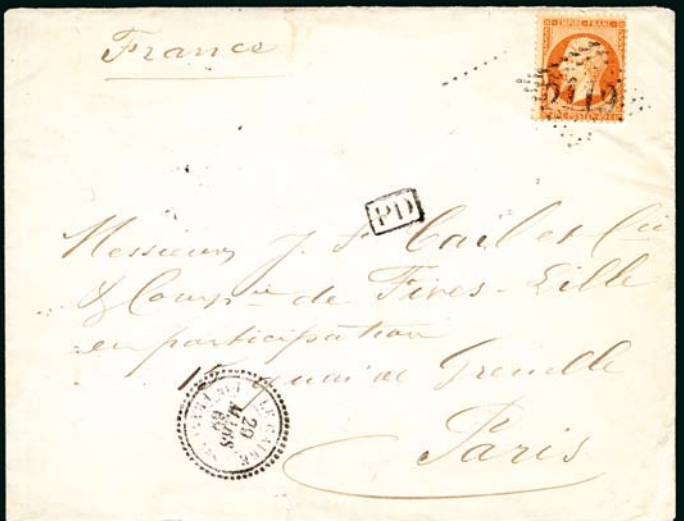 France
EMPIRE FRANC
PD
Messieurs J. F. Cail et Cie
& Compie de Fives-Lille
en participation
15 quai de Grenelle
Paris
LE CAIRE
29
MARS